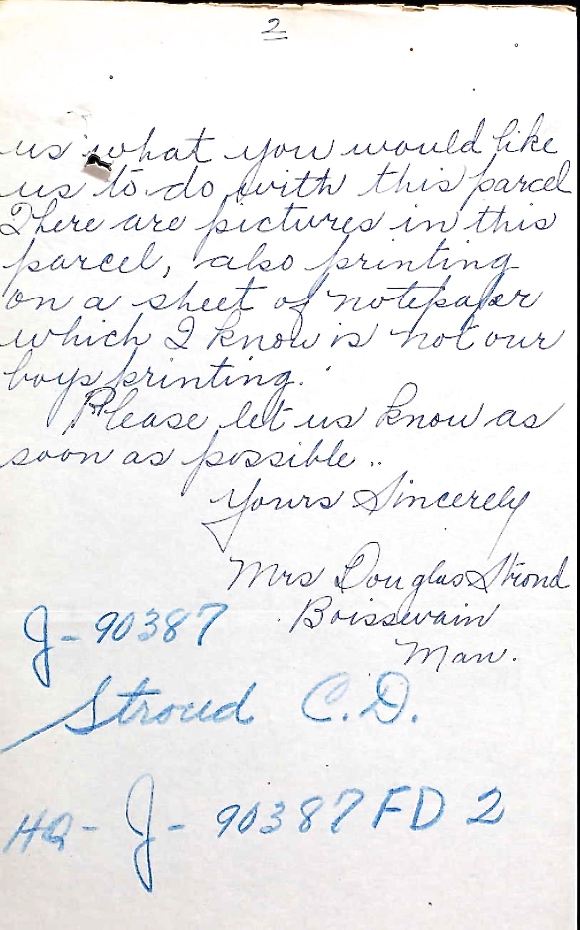 2
us what you would like
us to do with this parcel
There are pictures in this
parcel, also printing
on a sheet of notepaper
which I know is not our
boys printing.
Please let us know as
soon as possible..
Yours Sincerely
Mrs Douglas Stroud
Boissevain
Man.
J-90387
Stroud C.D.
HQ- J- 90387 FD 2